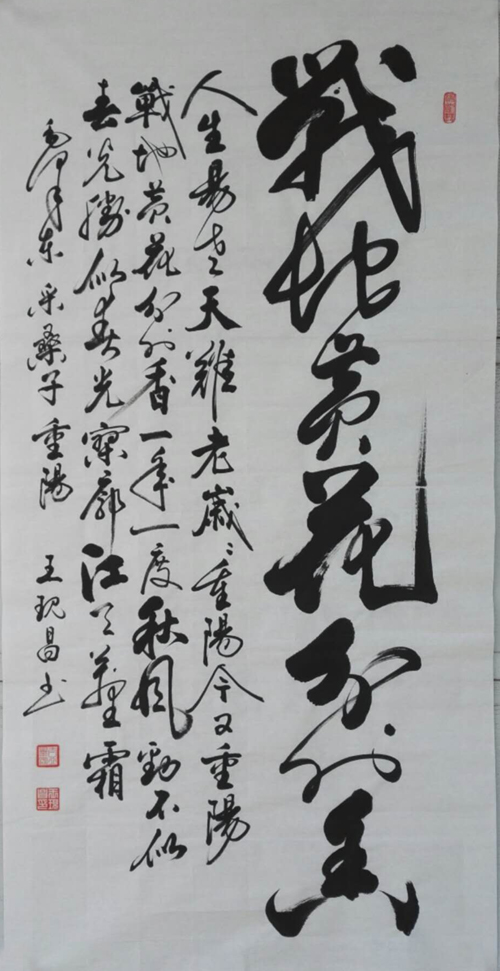 戰地黄花分外香
人生易老天難老歲〻重陽今又重陽
戰地黄花分外香一年一度秋風勁不似
春光勝似春光寥廓江天萬里霜
毛澤東采桑子重陽 王现昌书